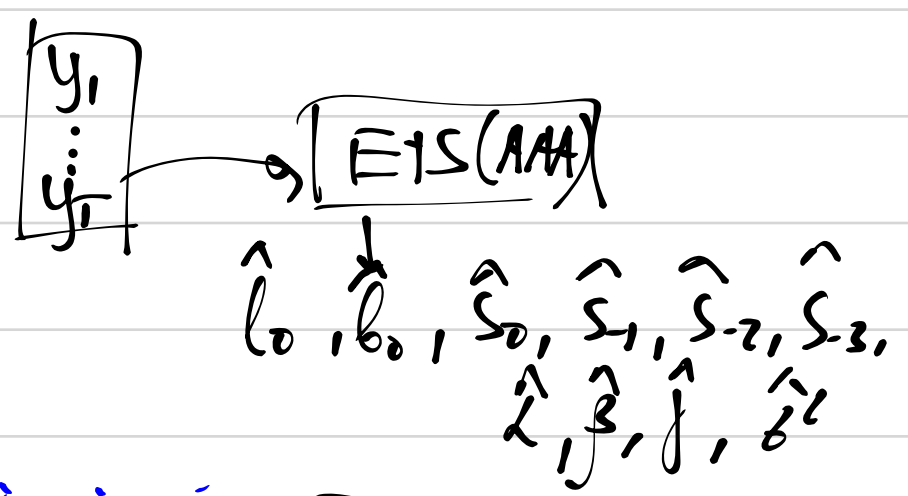 y₁
⋮
y_T
ETS(AAA)
l̂₀, b̂₀, ŝ₀, ŝ₋₁, ŝ₋₂, ŝ₋₃,
α̂, β̂, γ̂, σ̂²